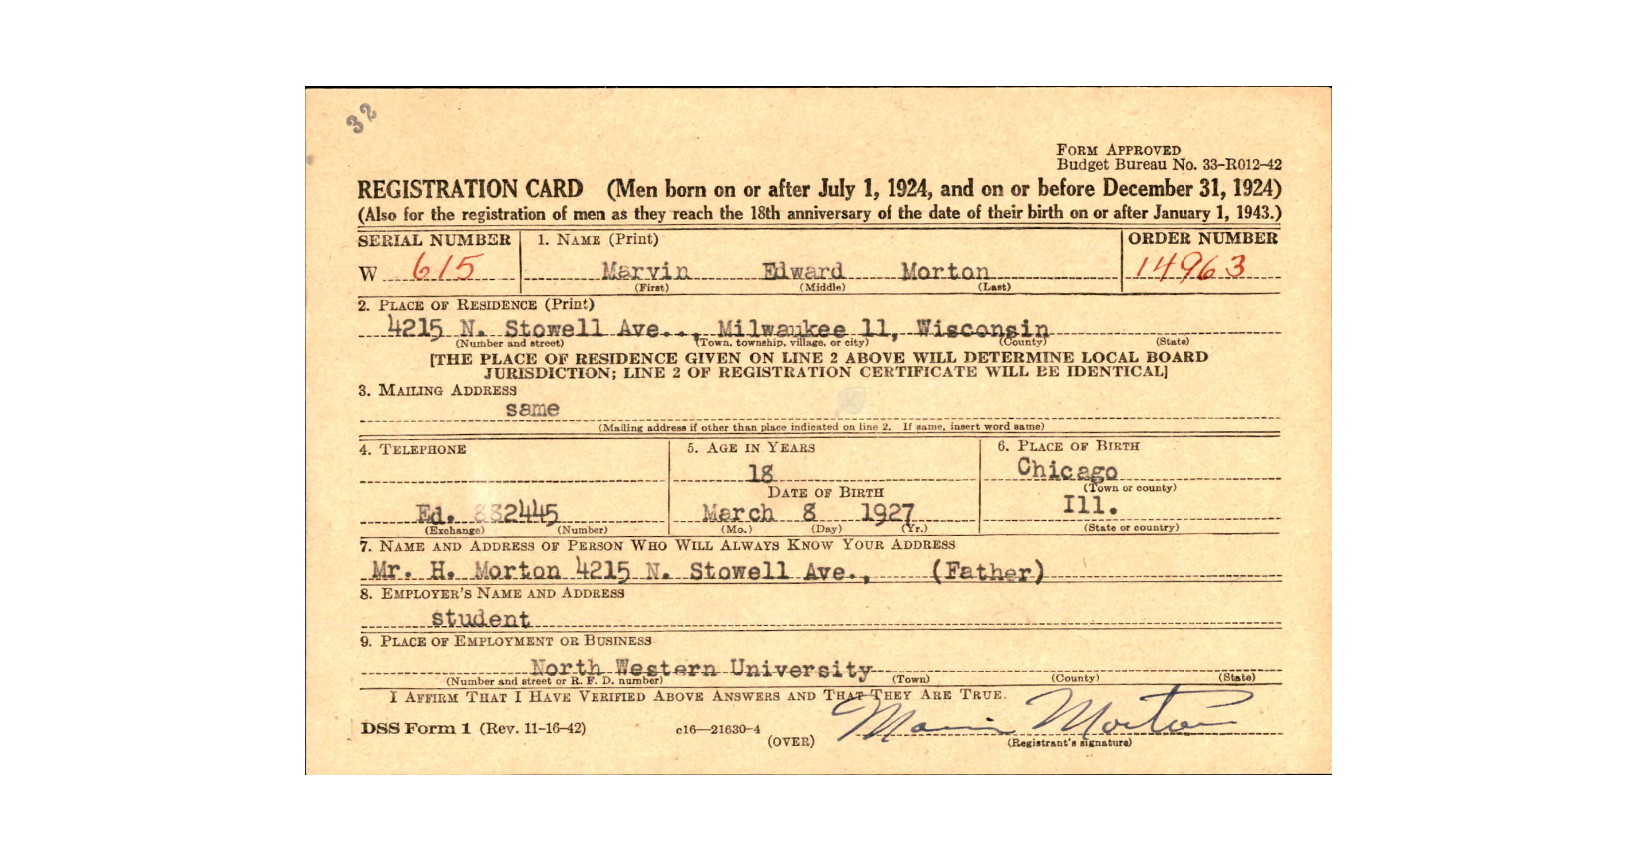 32
FORM APPROVED
Budget Bureau No. 33-R012-42
REGISTRATION CARD (Men born on or after July 1, 1924, and on or before December 31, 1924)
(Also for the registration of men as they reach the 18th anniversary of the date of their birth on or after January 1, 1943.)
SERIAL NUMBER 1. NAME (Print) ORDER NUMBER
W 615 Marvin Edward Morton 14963
(First) (Middle) (Last)
2. PLACE OF RESIDENCE (Print)
4215 N. Stowell Ave.., Milwaukee 11, Wisconsin
(Number and street) (Town, township, village, or city) (County) (State)
[THE PLACE OF RESIDENCE GIVEN ON LINE 2 ABOVE WILL DETERMINE LOCAL BOARD
JURISDICTION; LINE 2 OF REGISTRATION CERTIFICATE WILL BE IDENTICAL]
3. MAILING ADDRESS
same
(Mailing address if other than place indicated on line 2. If same, insert word same)
4. TELEPHONE 5. AGE IN YEARS 6. PLACE OF BIRTH
18 Chicago
DATE OF BIRTH (Town or county)
Ed. March 8 1927 Ill.
(Exchange) (Number) (Mo.) (Day) (Yr.) (State or country)
7. NAME AND ADDRESS OF PERSON WHO WILL ALWAYS KNOW YOUR ADDRESS
Mr. H. Morton 4215 N. Stowell Ave., (Father)
8. EMPLOYER'S NAME AND ADDRESS
student
9. PLACE OF EMPLOYMENT OR BUSINESS
North Western University
(Number and street or R. F. D. number) (Town) (County) (State)
I AFFIRM THAT I HAVE VERIFIED ABOVE ANSWERS AND THAT THEY ARE TRUE.
DSS Form 1 (Rev. 11-16-42) c16—21630-4 Marvin Morton
(OVER) (Registrant's signature)